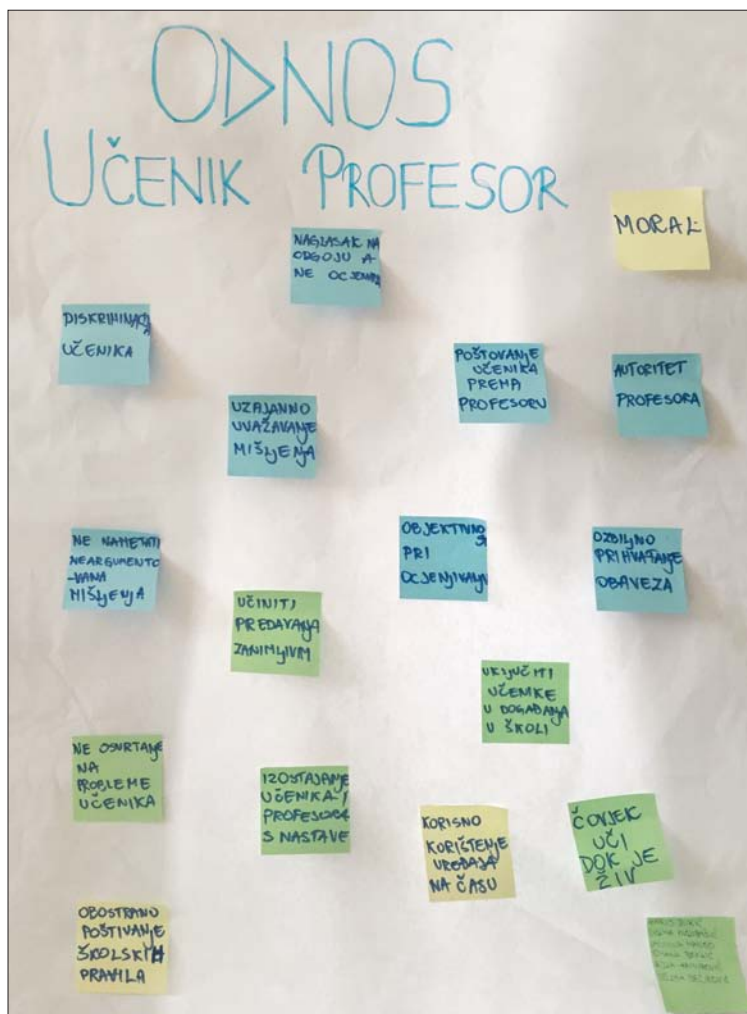 ODNOS
UČENIK PROFESOR
MORAL
NAGLASAK NA
ODGOJU A
NE OCJENAMA
DISKRIMINACIJA
UČENIKA
POŠTOVANJE
UČENIKA
PREMA
PROFESORU
AUTORITET
PROFESORA
UZAJAMNO
UVAŽAVANJE
MIŠLJENJA
NE NAMETATI
NEARGUMENTO
-VANA
MIŠLJENJA
OBJEKTIVNOST
PRI
OCJENJIVANJU
OZBILJNO
PRIHVATANJE
OBAVEZA
UČINITI
PREDAVANJA
ZANIMLJIVIM
UKLJUČITI
UČENIKE
U DOGAĐANJA
U ŠKOLI
NE OSVRTANJE
NA
PROBLEME
UČENIKA
IZOSTAJANJE
UČENIKA I
PROFESORA
S NASTAVE
KORISNO
KORIŠTENJE
UREĐAJA
NA ČASU
ČOVJEK
UČI
DOK JE
ŽIV
OBOSTRANO
POŠTIVANJE
ŠKOLSKIH
PRAVILA